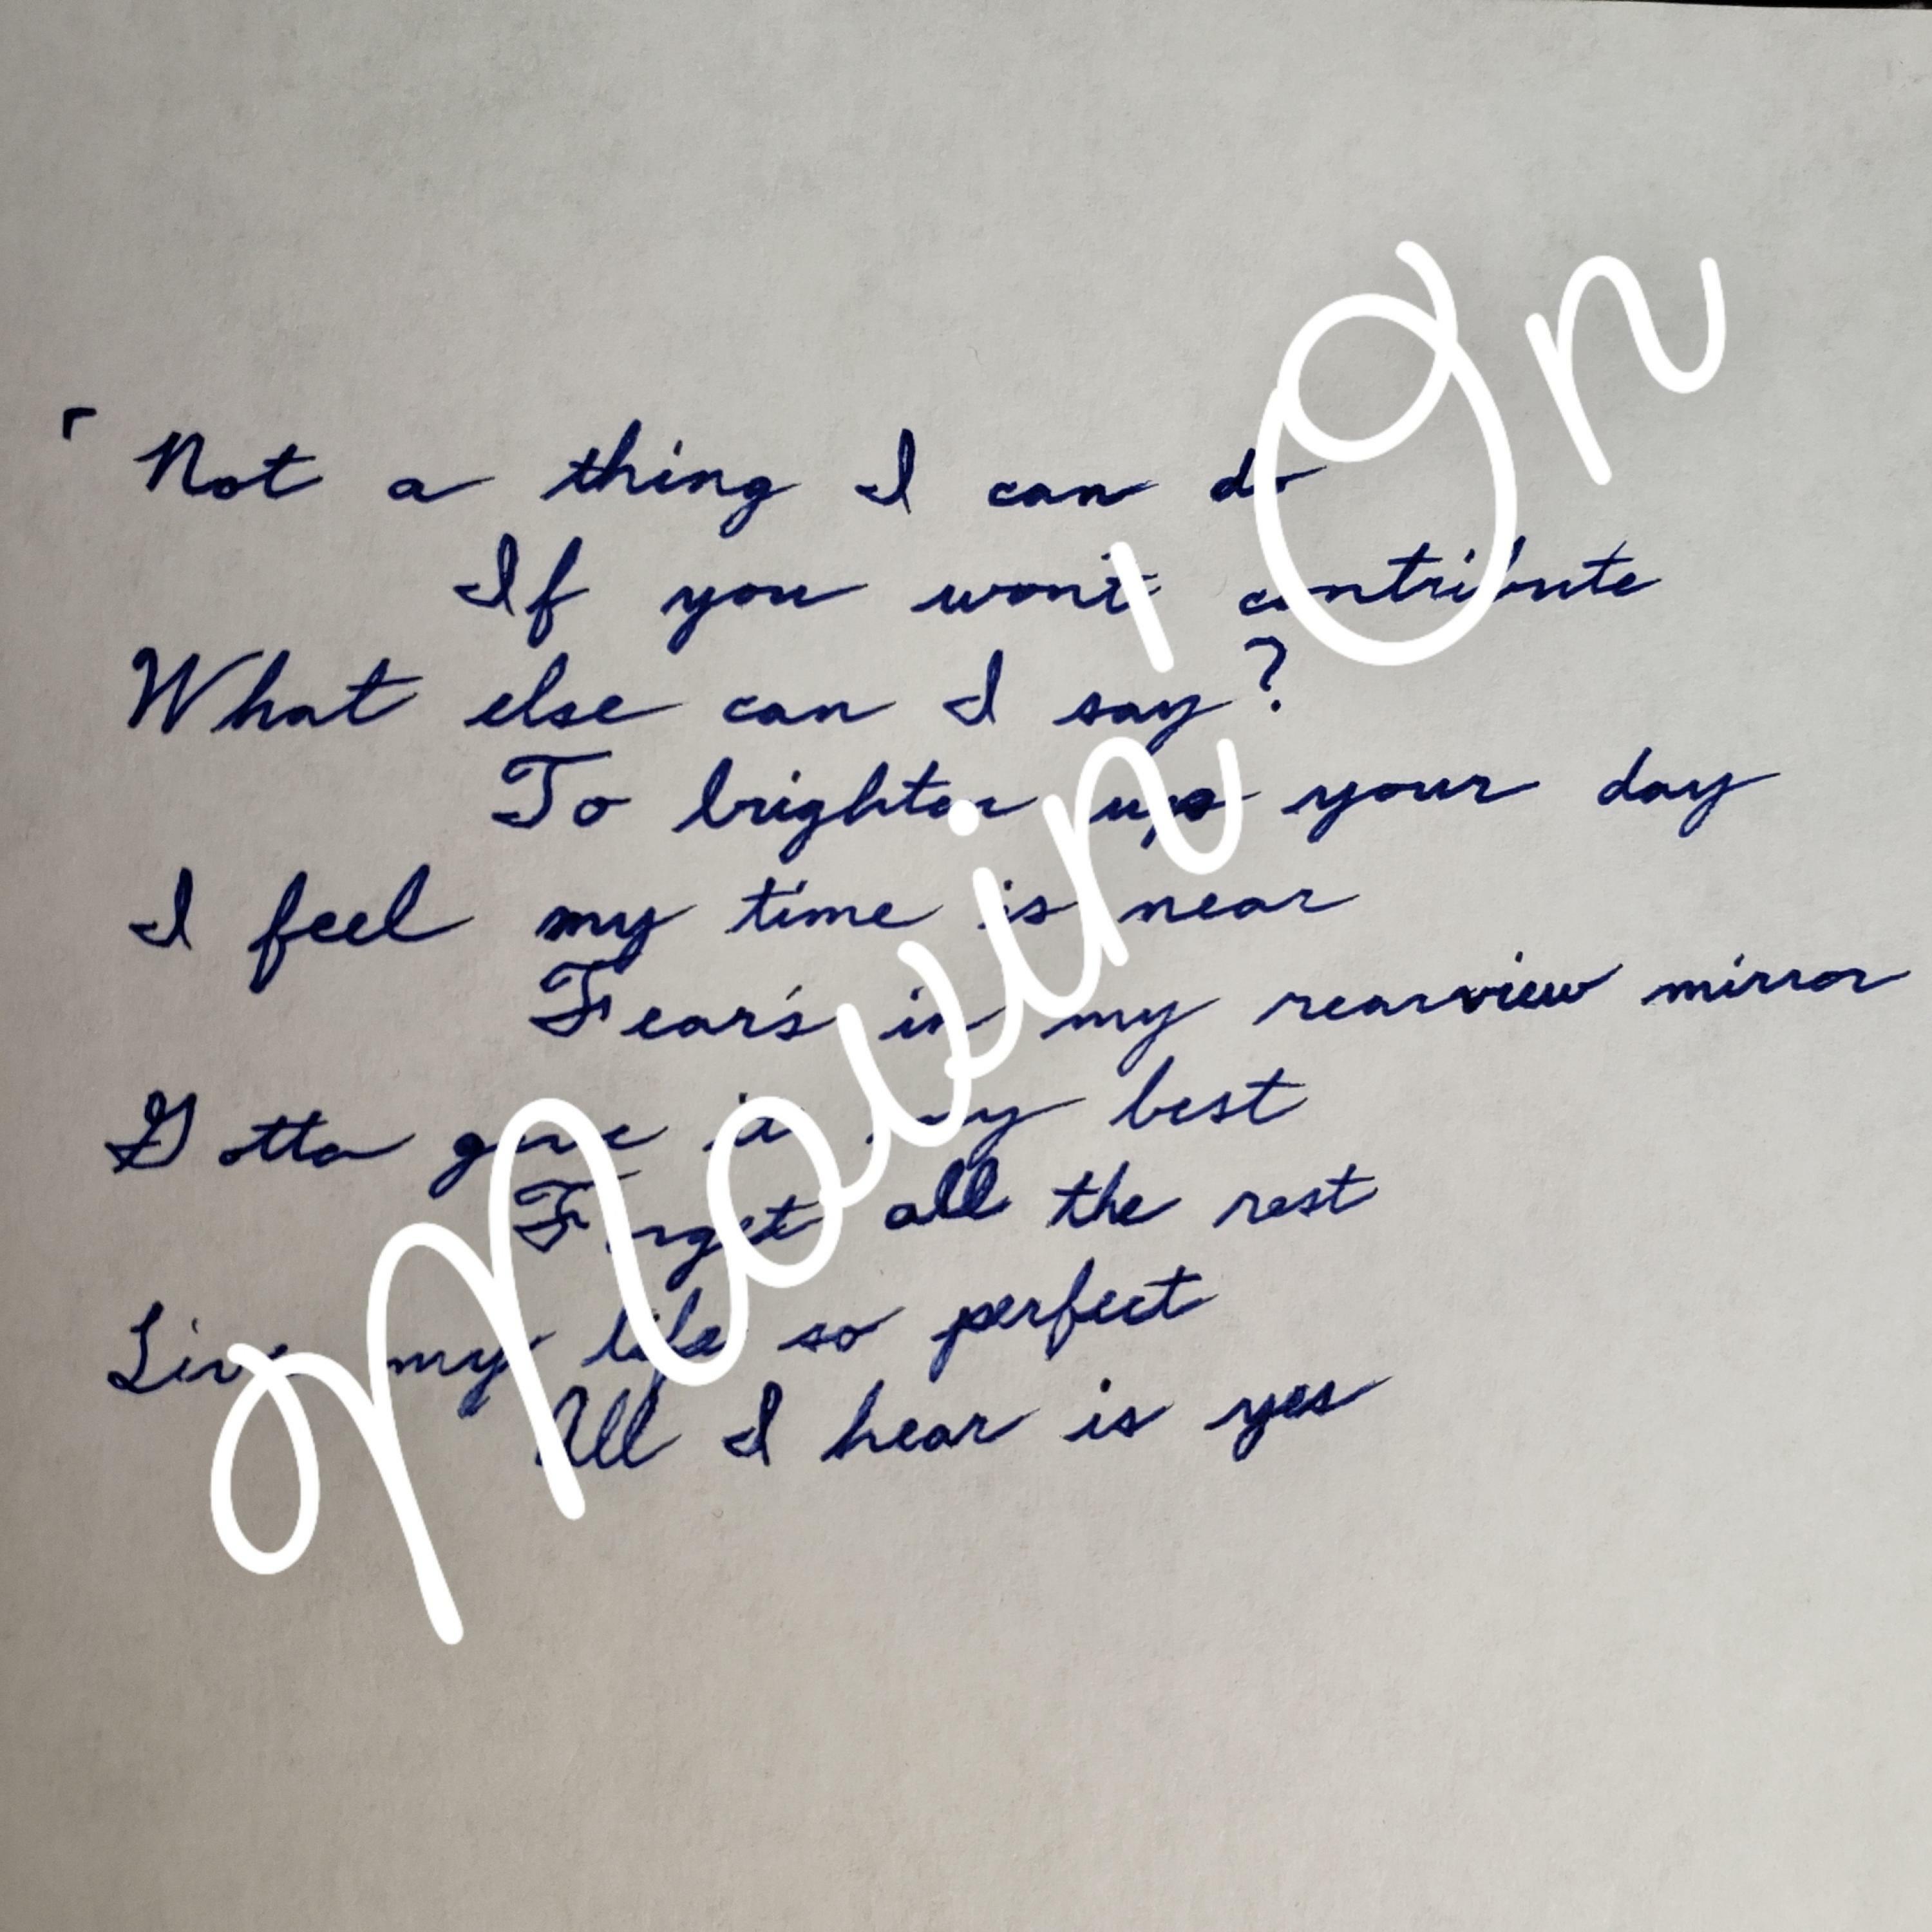 Not a thing I can do
If you wont contribute
What else can I say?
To brighten up your day
I feel my time is near
Fear's in my rearview mirror
Gotta give it my best
Forget all the rest
Live my life so perfect
All I hear is yes
Movin' On